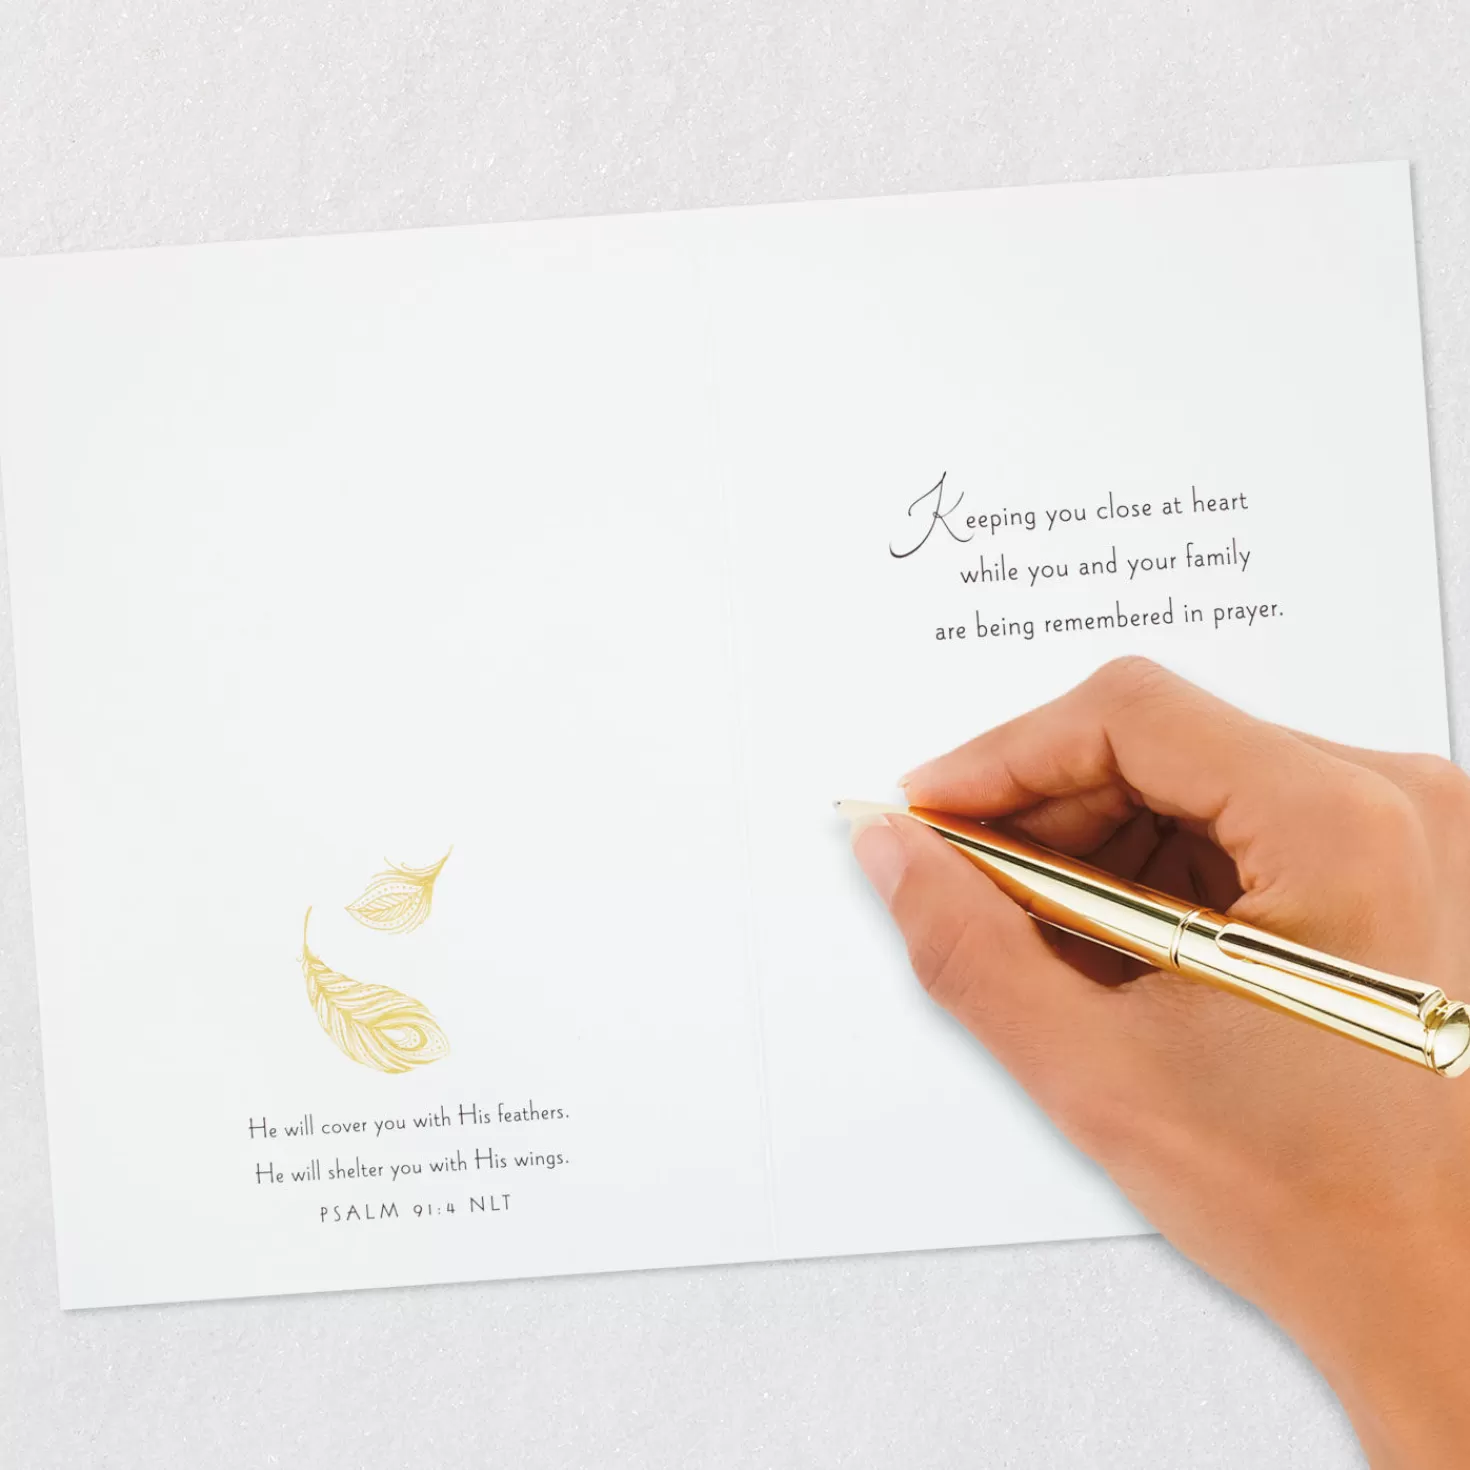 He will cover you with His feathers.
He will shelter you with His wings.
PSALM 91:4 NLT
Keeping you close at heart
while you and your family
are being remembered in prayer.